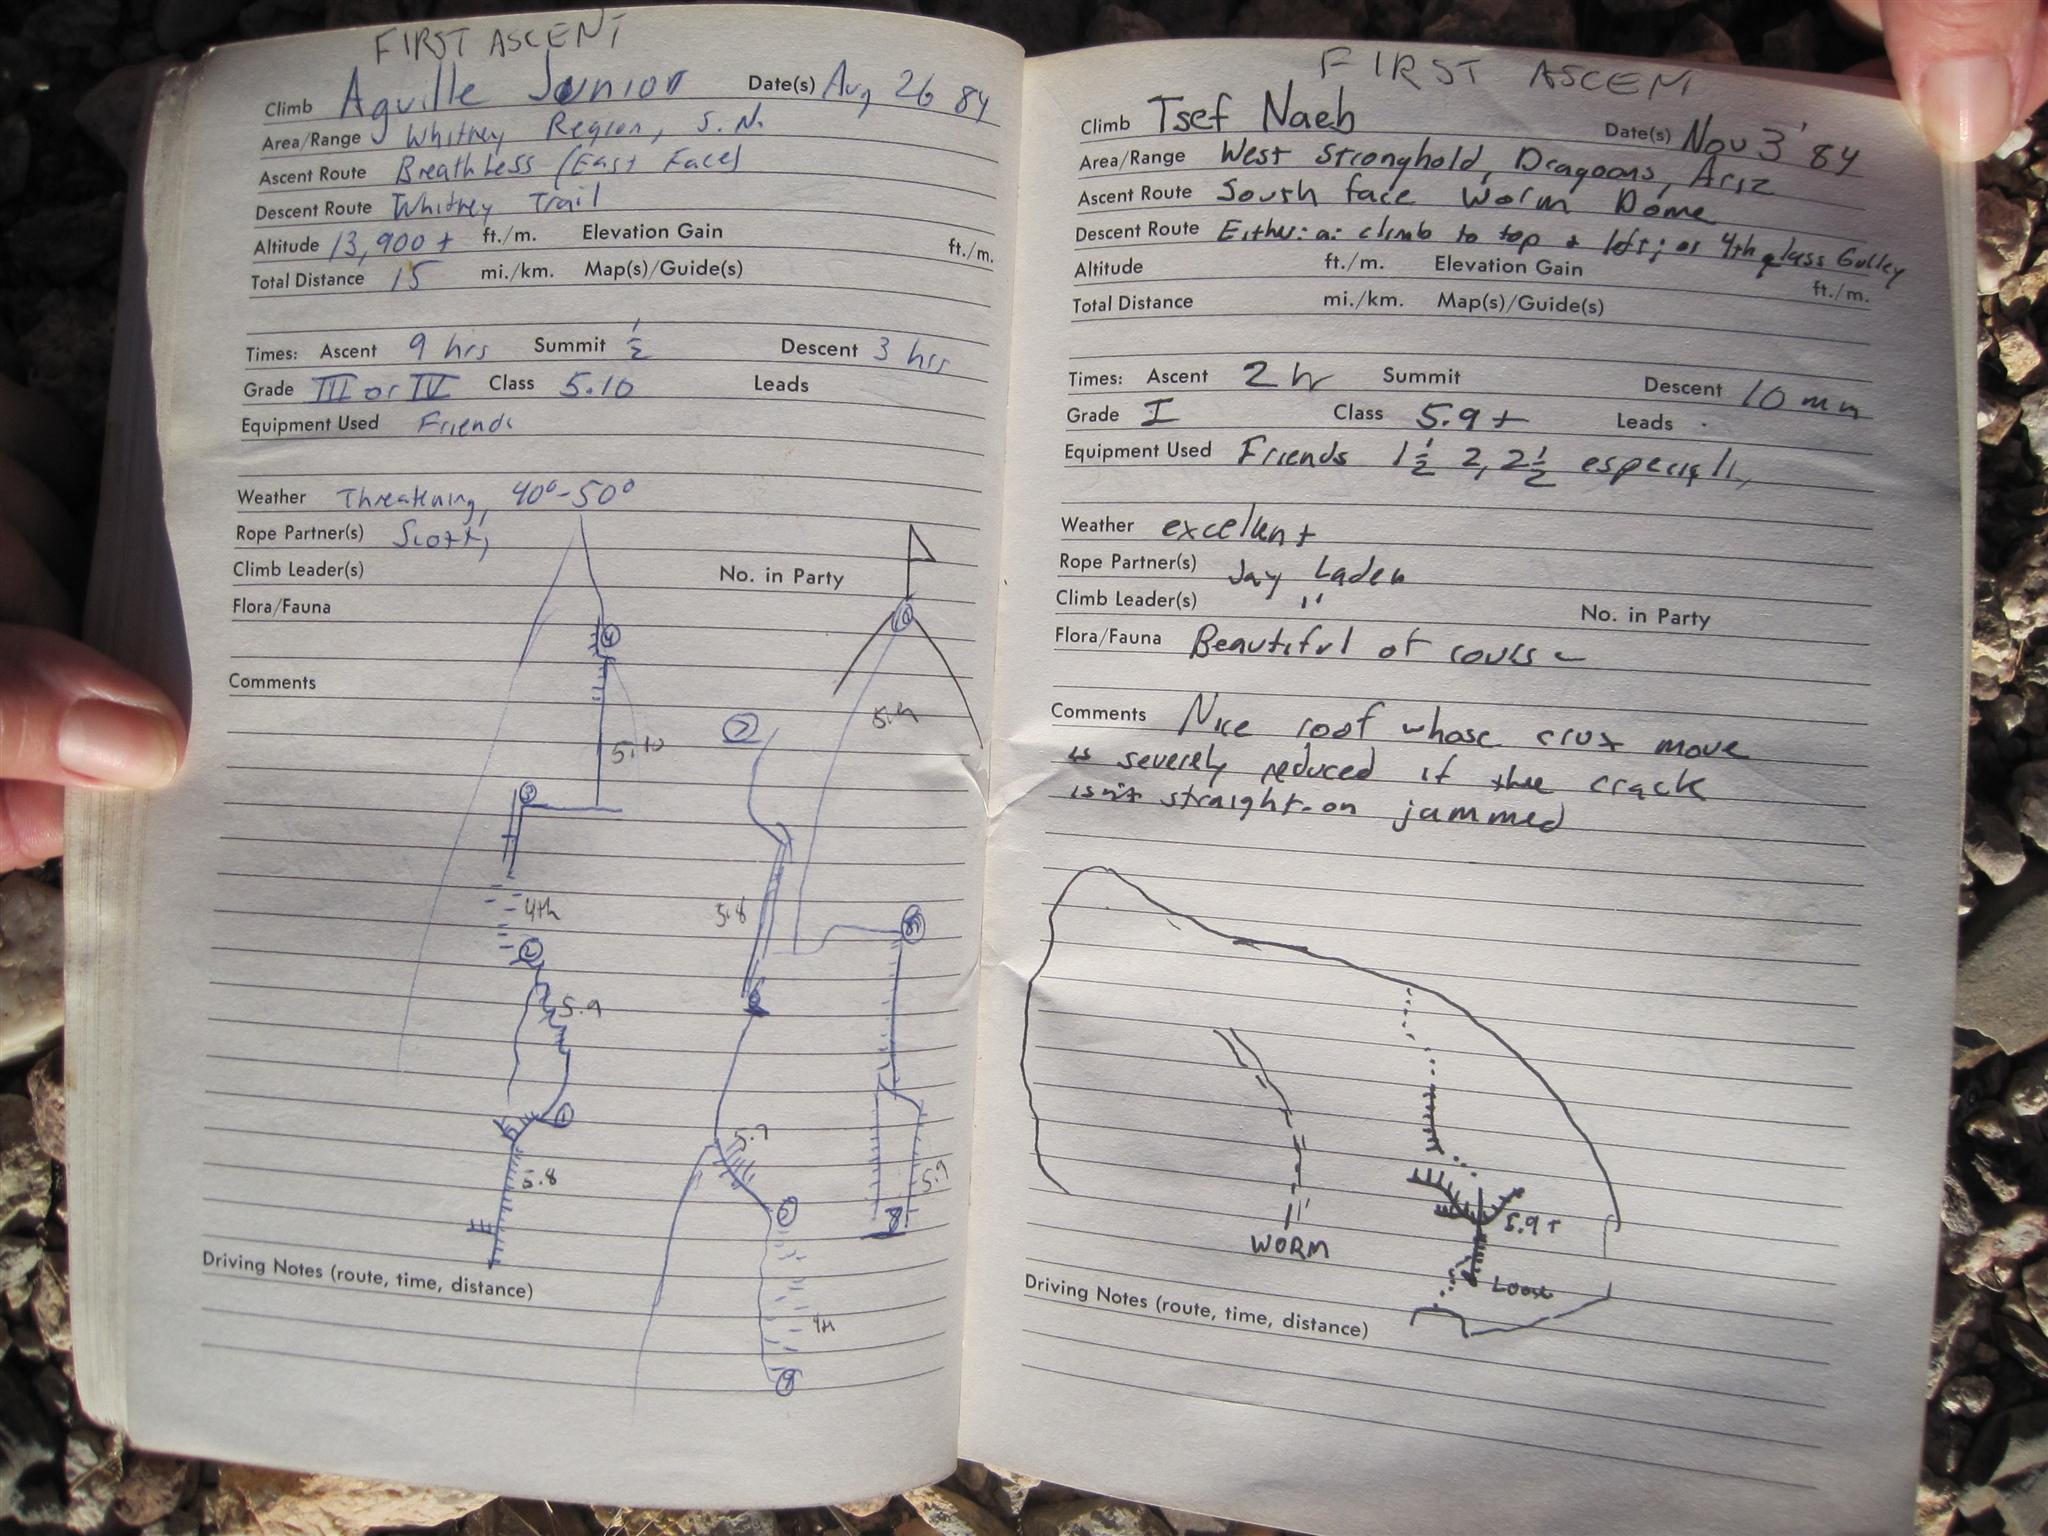 FIRST ASCENT
Climb Aguille Junior Date(s) Aug 26 84
Area/Range Whitney Region, S.N.
Ascent Route Breathless (East Face)
Descent Route Whitney Trail
Altitude 13,900+ ft./m. Elevation Gain ft./m.
Total Distance 15 mi./km. Map(s)/Guide(s)
Times: Ascent 9 hrs Summit 1/2 Descent 3 hrs
Grade III or IV Class 5.10 Leads
Equipment Used Friends
Weather Threatening, 40°-50°
Rope Partner(s) Scott,
Climb Leader(s) No. in Party
Flora/Fauna
Comments
4
10
5.9
7
5.10
3
5.8
4th
2
8
5.9
6
1
5.7
5.8
5
5.7
4th
Driving Notes (route, time, distance)
FIRST ASCENT
Climb Tsef Naeb Date(s) Nov 3 '84
Area/Range West Stronghold, Dragoons, Ariz
Ascent Route South face Worm Dome
Descent Route Either: a: climb to top + left; or 4th class Gulley
Altitude ft./m. Elevation Gain ft./m.
Total Distance mi./km. Map(s)/Guide(s)
Times: Ascent 2 hr Summit Descent 10 min
Grade I Class 5.9+ Leads
Equipment Used Friends 1 1/2 2, 2 1/2 especially
Weather excellent
Rope Partner(s) Jay Laden
Climb Leader(s) " No. in Party
Flora/Fauna Beautiful of course
Comments Nice roof whose crux move
is severely reduced if the crack
isn't straight-on jammed
5.9+
WORM
Loose
Driving Notes (route, time, distance)